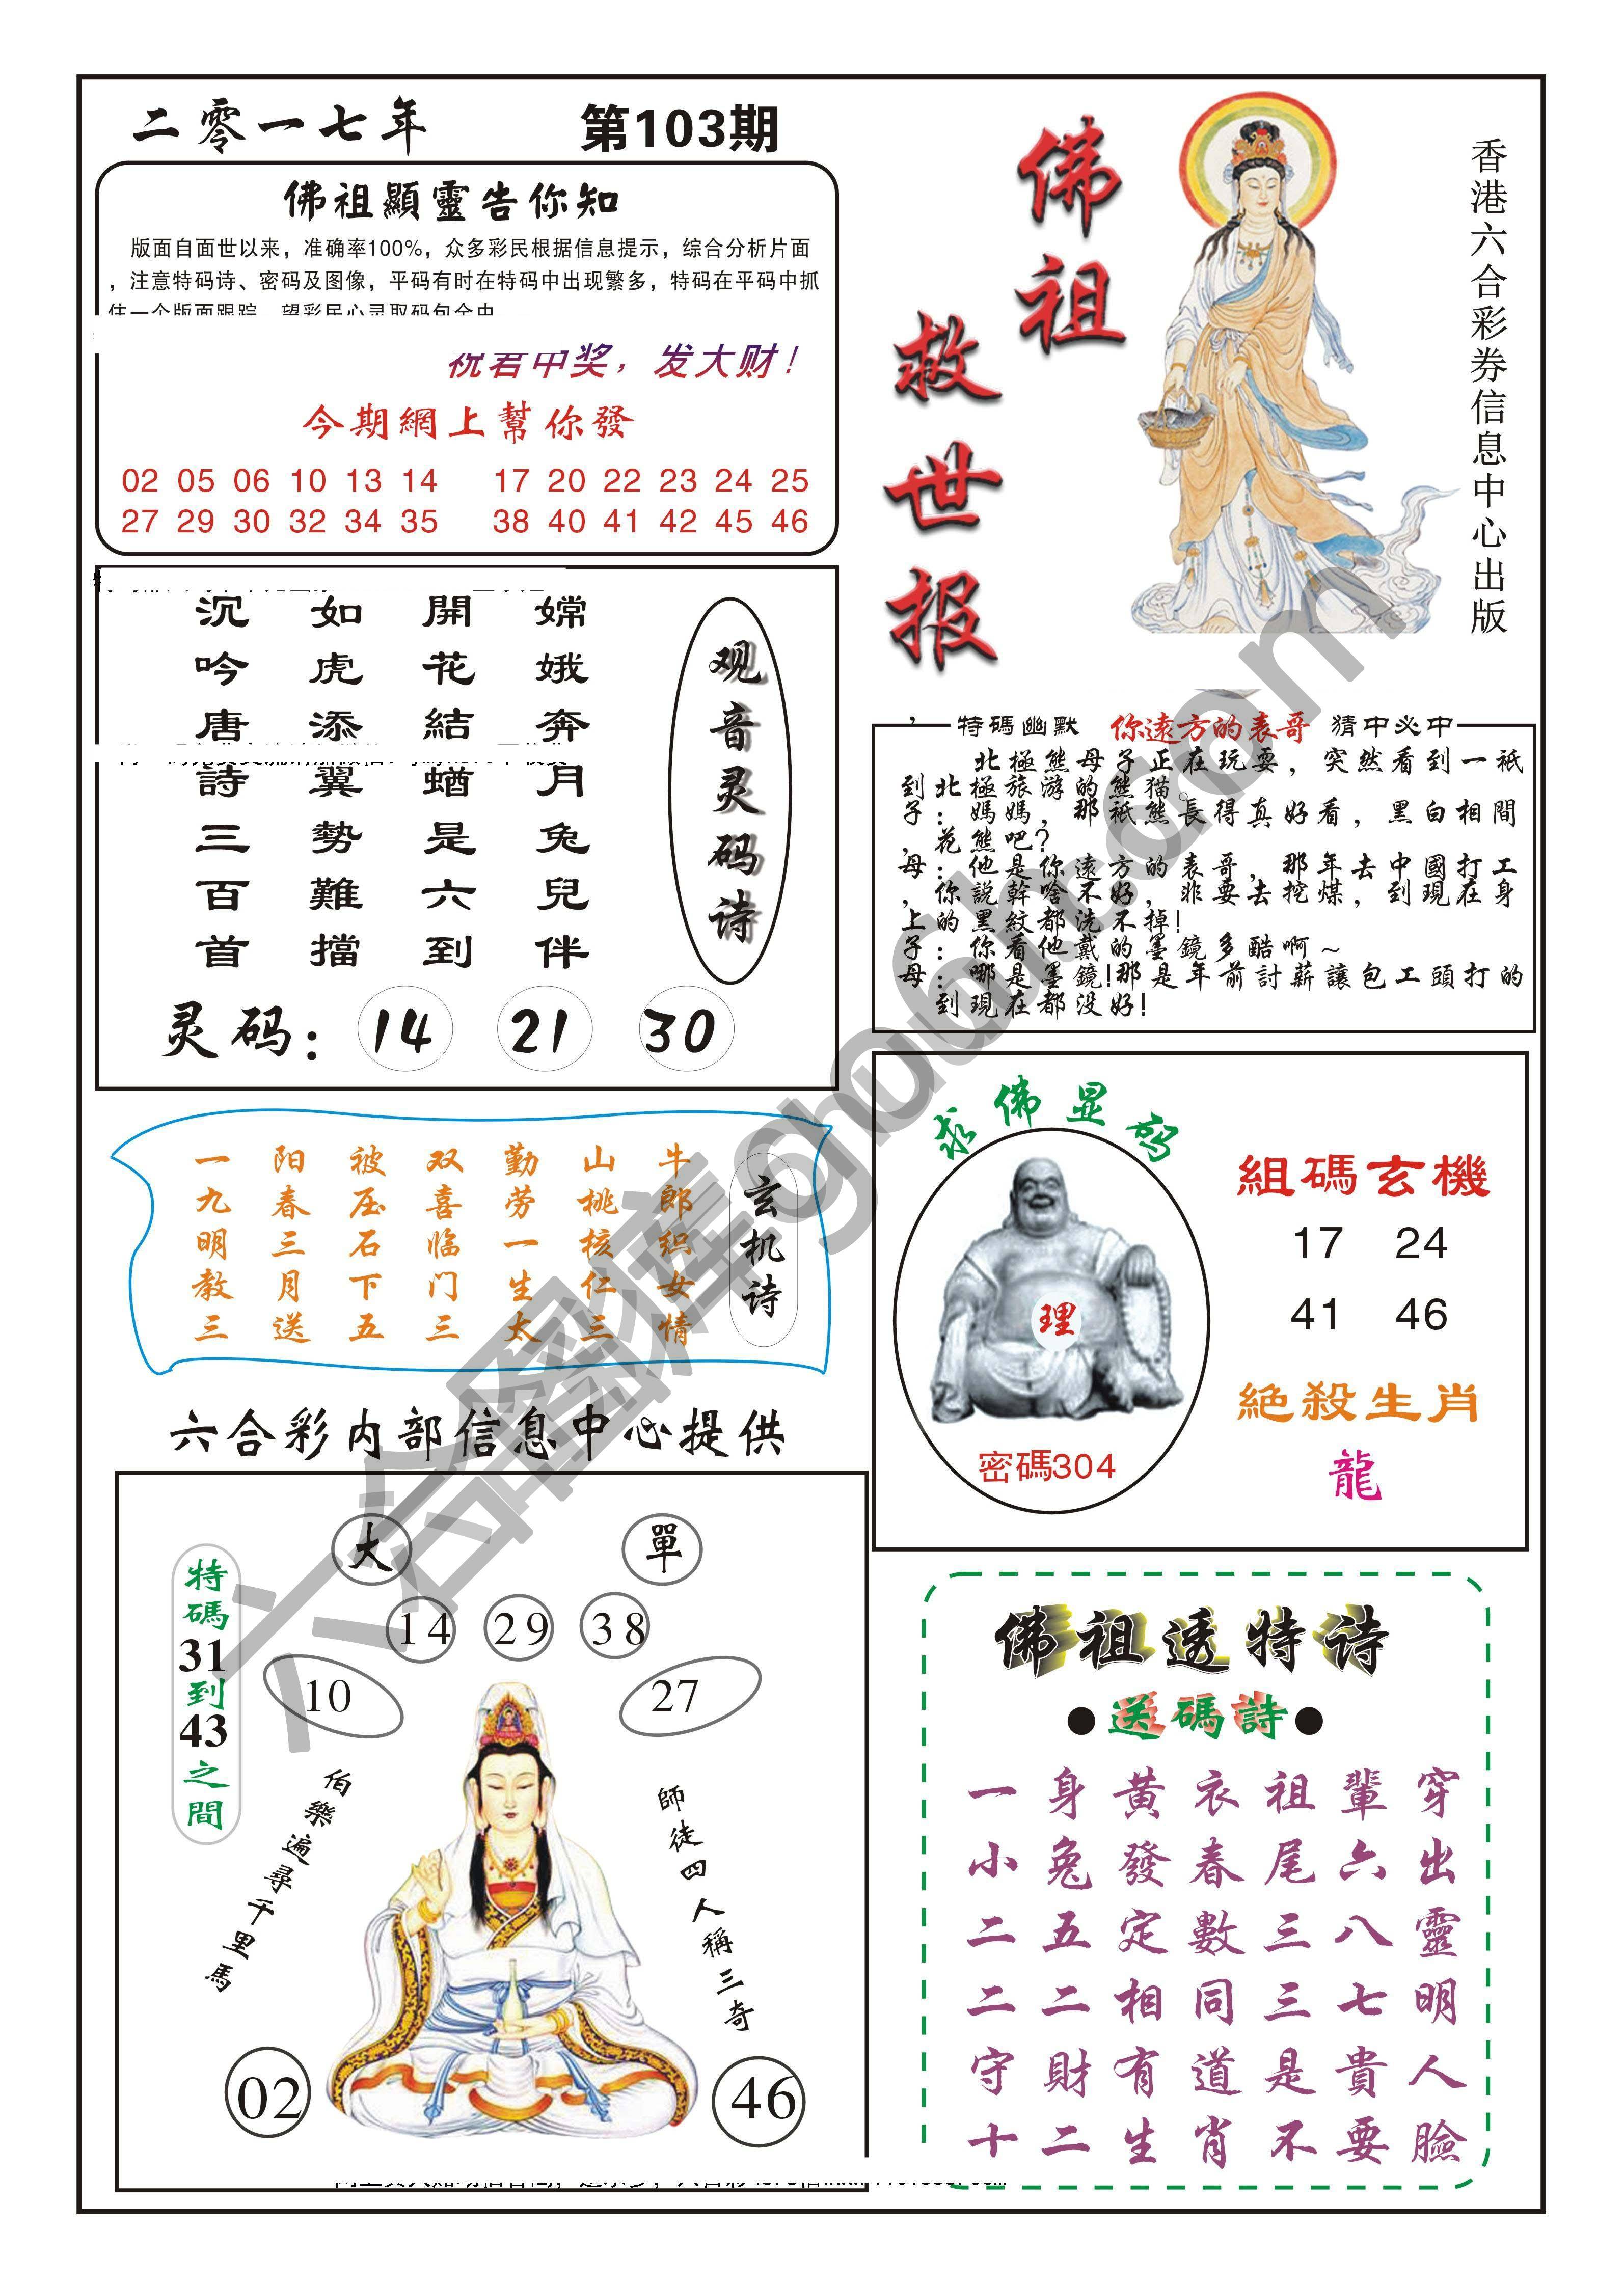 二零一七年
第103期
佛祖顯靈告你知
版面自面世以来，准确率100%，众多彩民根据信息提示，综合分析片面
，注意特码诗、密码及图像，平码有时在特码中出现繁多，特码在平码中抓
住一个版面跟踪
祝君中奖，发大财！
今期網上幫你發
02 05 06 10 13 14 17 20 22 23 24 25
27 29 30 32 34 35 38 40 41 42 45 46
佛祖
救世报
香港六合彩券信息中心出版
观音灵码诗
嫦娥奔月兔兒伴
開花結蝤是六到
如虎添翼勢難擋
沉吟唐詩三百首
灵码：14 21 30
特碼幽默 你遠方的表哥 猜中必中
北極熊母子正在玩耍，突然看到一祇
到北極旅游的熊猫。
子：媽媽，那祇熊長得真好看，黑白相間
，花熊吧？
母：他是你遠方的表哥，那年去中國打工
，你説幹啥不好，非要去挖煤，到現在身
上的黑紋都洗不掉！
子：你看他戴的墨鏡多酷啊～
母：哪是墨鏡！那是年前討薪讓包工頭打的
到現在都没好！
玄机诗
牛郎织女情
山桃核仁三
勤劳一生太
双喜临门三
被压石下五
阳春三月送
一九明教三
求佛显码
理
密碼304
組碼玄機
17 24
41 46
絕殺生肖
龍
六合彩内部信息中心提供
大
單
14 29 38
10
27
特碼31到43之間
伯樂遍尋千里馬
師徒四人稱三奇
02
46
佛祖透特诗
●送碼詩●
一身黃衣祖輩穿
小兔發春尾六出
二五定數三八靈
二二相同三七明
守財有道是貴人
十二生肖不要臉
六合图库@gouwk.com